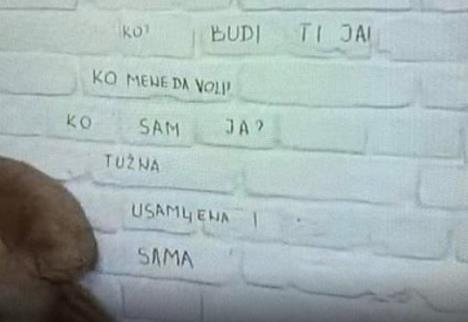 KO? BUDI TI JA!
KO MENE DA VOLI?
KO SAM JA?
TUŽNA
USAMLJENA I
SAMA